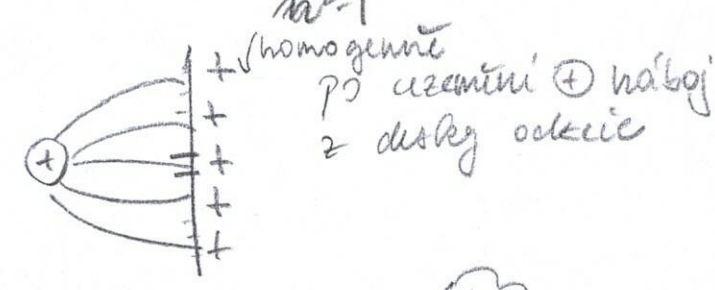 homogenně
po uzemnění ⊕ náboj
z desky odteče
+
+
+
+
+
+